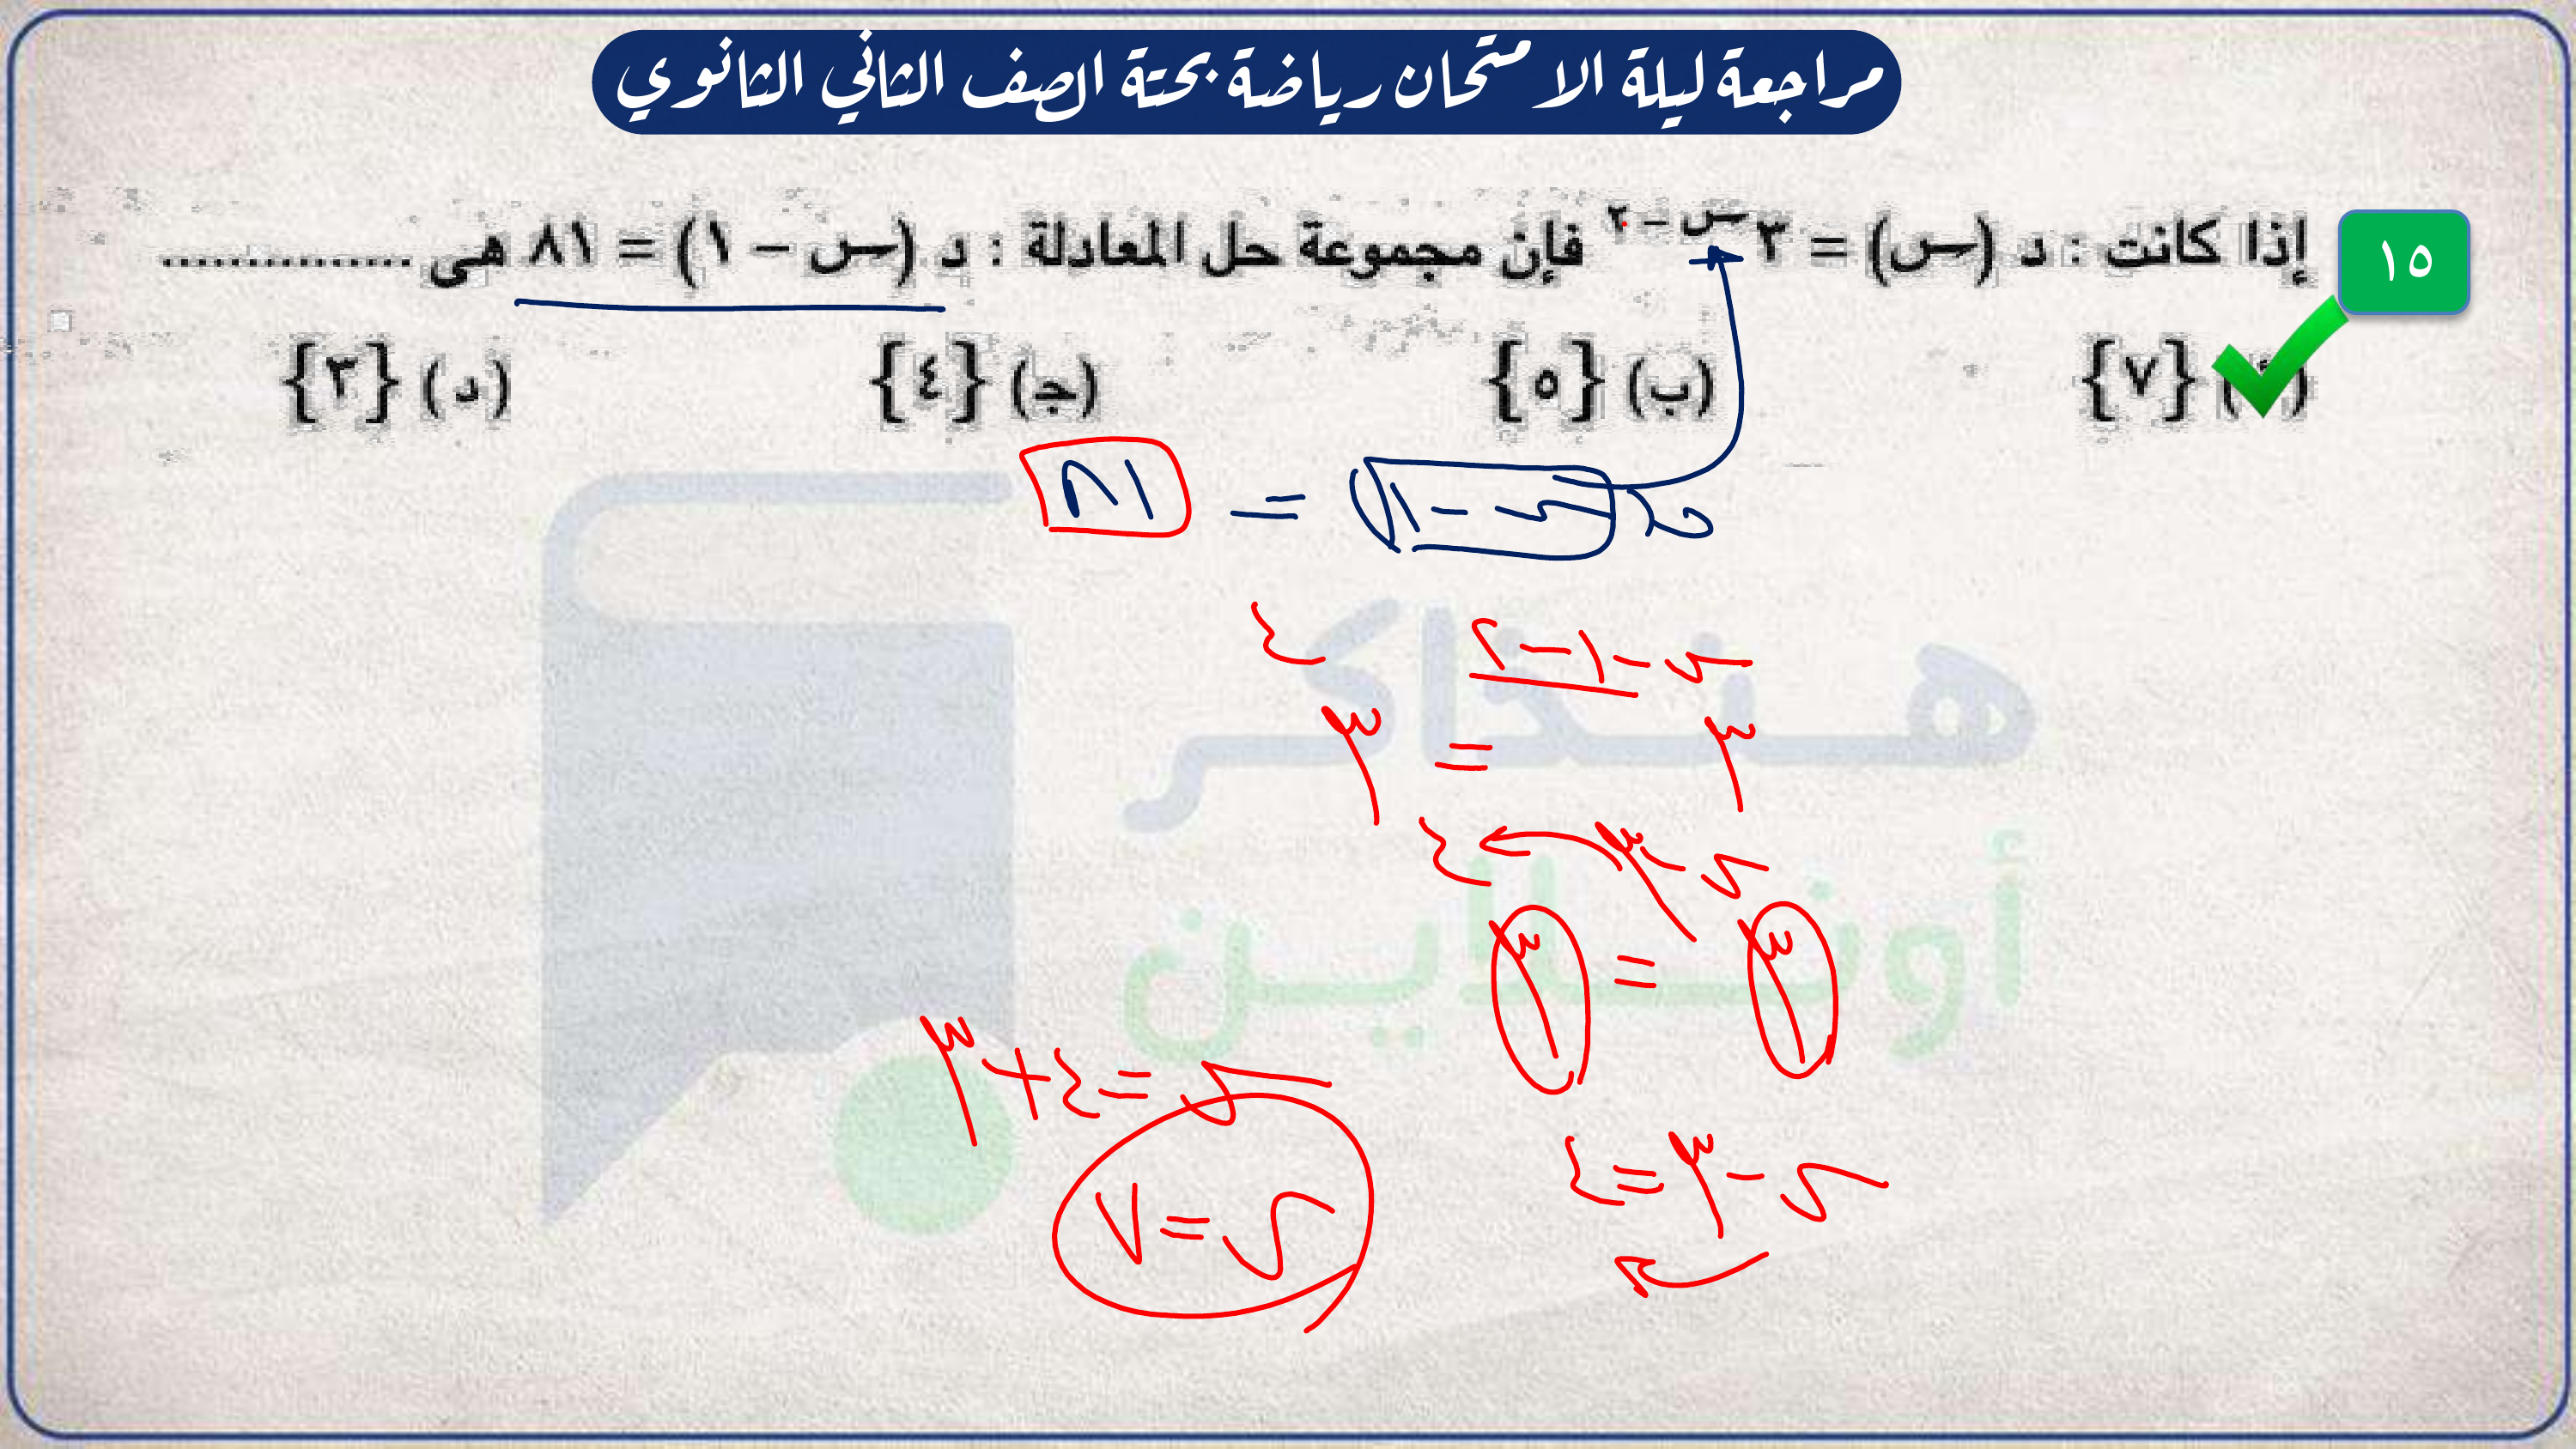 مراجعة ليلة الامتحان رياضة بحتة الصف الثاني الثانوي
١٥ إذا كانت : د (س) = ٣^(س - ٢) فإن مجموعة حل المعادلة : د (س - ١) = ٨١ هى ...............
(أ) {٧} (ب) {٥} (ج) {٤} (د) {٣}
د (س - ١) = ٨١
٣^(س - ١ - ٢) = ٣^٤
٣^(س - ٣) = ٣^٤
س - ٣ = ٤
س = ٤ + ٣
س = ٧
هنذاكر
أونلاين